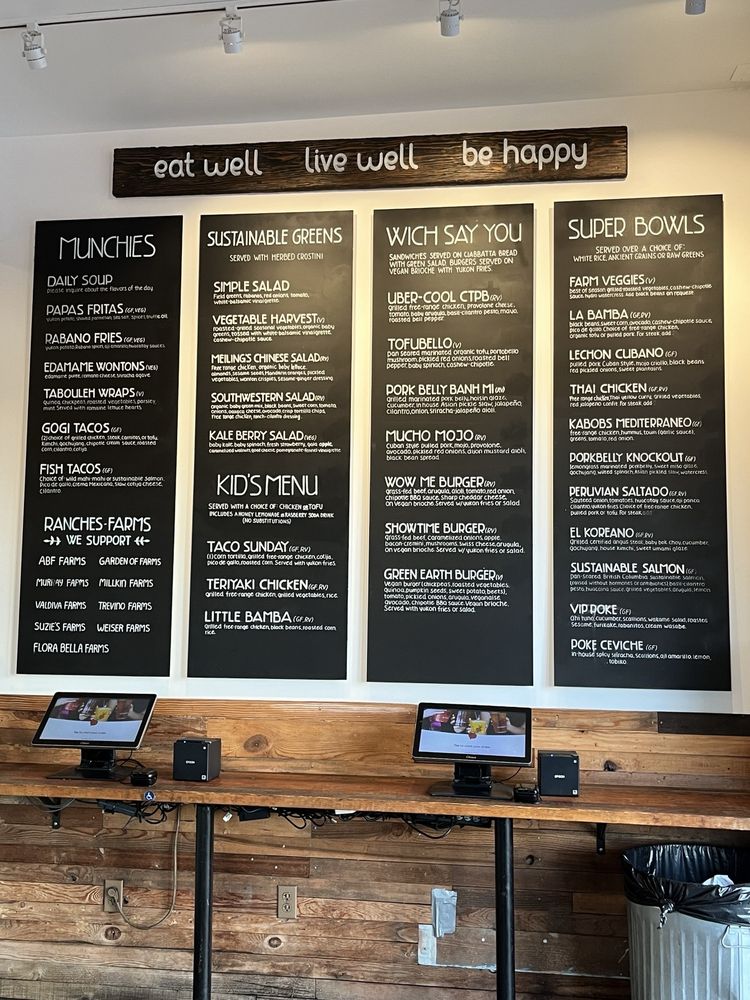 eat well live well be happy
MUNCHIES
DAILY SOUP
please inquire about the flavors of the day
PAPAS FRITAS (GF, VEG)
RABANO FRIES (GF, VEG)
EDAMAME WONTONS (VEG)
edamame puree, romano cheese, sriracha agave.
TABOULEH WRAPS (V)
quinoa, chickpeas, roasted vegetables, parsley,
mint. Served with romaine lettuce hearts.
GOGI TACOS (GF)
(2) choice of grilled chicken, steak, carnitas, or tofu,
Kimchi, gochujang, chipotle cream sauce, roasted
corn, cilantro, cotija.
FISH TACOS (GF)
Choice of wild mahi-mahi or sustainable Salmon.
Pico de gallo, crema Mexicana, slaw, cotija cheese,
cilantro.
RANCHES-FARMS
WE SUPPORT
ABF FARMS GARDEN OF FARMS
MURRAY FARMS MILLKIN FARMS
VALDIVIA FARMS TREVINO FARMS
SUZIE'S FARMS WEISER FARMS
FLORA BELLA FARMS
SUSTAINABLE GREENS
SERVED WITH HERBED CROSTINI
SIMPLE SALAD
Field greens, rabanos, red onions, tomato,
white-balsamic vinaigrette.
VEGETABLE HARVEST (V)
roasted-grilled seasonal vegetables, organic baby
greens, tossed with white-balsamic vinaigrette,
cashew-chipotle sauce.
MEILING'S CHINESE SALAD (RV)
Free range chicken, organic baby lettuce,
almonds, sesame seeds, Mandarin oranges, pickled
vegetables, wonton crisps, sesame-ginger dressing.
SOUTHWESTERN SALAD (RV)
organic baby green mix, black beans, sweet corn, tomato,
onions, oaxaca cheese, avocado, crisp tortilla chips,
Free range chicken, ranch-cilantro dressing.
KALE BERRY SALAD (VEG)
baby kale, baby spinach, fresh strawberry, gala apple,
caramelized walnuts, goat cheese, pomegranate-fennel vinaigrette.
KID'S MENU
SERVED WITH A CHOICE OF CHICKEN OR TOFU
INCLUDES A HONEY LEMONADE OR RASBERRY SODA DRINK
(NO SUBSTITUTIONS)
TACO SUNDAY (GF, RV)
(1) corn tortilla, grilled free-range chicken, cotija,
pico de gallo, roasted corn. Served with yukon fries.
TERIYAKI CHICKEN (GF, RV)
grilled free-range chicken, grilled vegetables, rice.
LITTLE BAMBA (GF, RV)
grilled free-range chicken, black beans, roasted corn
rice.
WICH SAY YOU
SANDWICHES SERVED ON CIABBATTA BREAD
WITH GREEN SALAD BURGERS SERVED ON
VEGAN BRIOCHE WITH YUKON FRIES.
UBER-COOL CTPB (RV)
grilled free-range chicken, provolone cheese,
tomato, baby arugula, basil-cilantro pesto, mayo,
roasted bell pepper.
TOFUBELLO (V)
pan seared marinated organic tofu, portobello
mushroom, pickled red onions, roasted bell
pepper, baby spinach, cashew-chipotle.
PORK BELLY BANH MI (RV)
grilled marinated pork belly, hoisin glaze,
cucumber, in house Asian pickle slaw, jalapeño,
cilantro, onion, sriracha-jalapeño aioli.
MUCHO MOJO (RV)
Cuban style pulled pork, mojo, provolone,
avocado, pickled red onions, dijon mustard aioli,
black bean spread.
WOW ME BURGER (RV)
grass-fed beef, arugula, aioli, tomato, red onion,
chipotle BBQ sauce, sharp cheddar cheese,
on vegan brioche. Served w/ yukon fries or salad.
SHOWTIME BURGER (RV)
Grass-fed beef, caramelized onions, apple,
bacon-cremini, mushrooms, swiss cheese, arugula,
on vegan brioche. Served w/ yukon fries or salad.
GREEN EARTH BURGER (V)
Vegan burger (chickpeas, roasted vegetables,
Quinoa, pumpkin seeds, sweet potato, beets),
tomato, pickled onions, arugula, veganaise,
avocado, chipotle BBQ sauce. Vegan brioche.
Served with yukon fries or salad.
SUPER BOWLS
SERVED OVER A CHOICE OF:
WHITE RICE, ANCIENT GRAINS OR RAW GREENS
FARM VEGGIES (V)
best of season grilled-roasted vegetables, cashew-chipotle
sauce, hydro watercress. Add black beans on request.
LA BAMBA (GF, RV)
black beans, sweet corn, avocado, cashew-chipotle sauce,
pico de gallo. Choice of free-range chicken,
organic tofu or pulled pork. for steak add
LECHON CUBANO (GF)
pulled pork Cuban style, mojo criollo, black beans
red pickled onions, sweet plantains.
THAI CHICKEN (GF, RV)
Free range chicken, Thai yellow curry, grilled vegetables,
red jalapeño confit. for steak add
KABOBS MEDITERRANEO (GF)
free range chicken, hummus, toum (garlic sauce),
greens, tomato, red onion.
PORKBELLY KNOCKOUT (GF)
lemongrass marinated porkbelly, sweet miso glaze,
gochujang, watercress, Asian pickled slaw, watercress.
PERUVIAN SALTADO (GF, RV)
Sauteed onion, tomatoes, huacatay sauce, aji panca,
cilantro, yukon fries. Choice of free range chicken,
pulled pork or tofu. for steak add
EL KOREANO (GF, RV)
grilled certified angus steak, baby bok choy, cucumber,
gochujang, house kimchi, sweet umami glaze.
SUSTAINABLE SALMON (GF)
pan-seared British Columbia Sustainable Salmon,
VIP POKE (GF)
POKE CEVICHE (GF)
in-house spicy sriracha, scallions, aji amarillo, lemon,
tobiko.
EPSON
EPSON